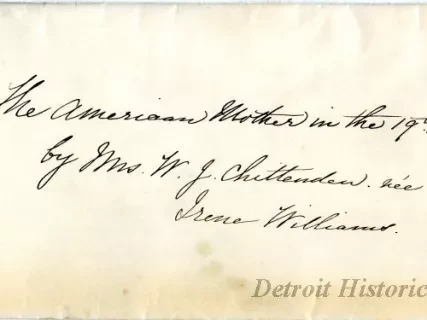 The American Mother in the 19th
by Mrs. W. J. Chittenden. née
Irene Williams.
Detroit Historic